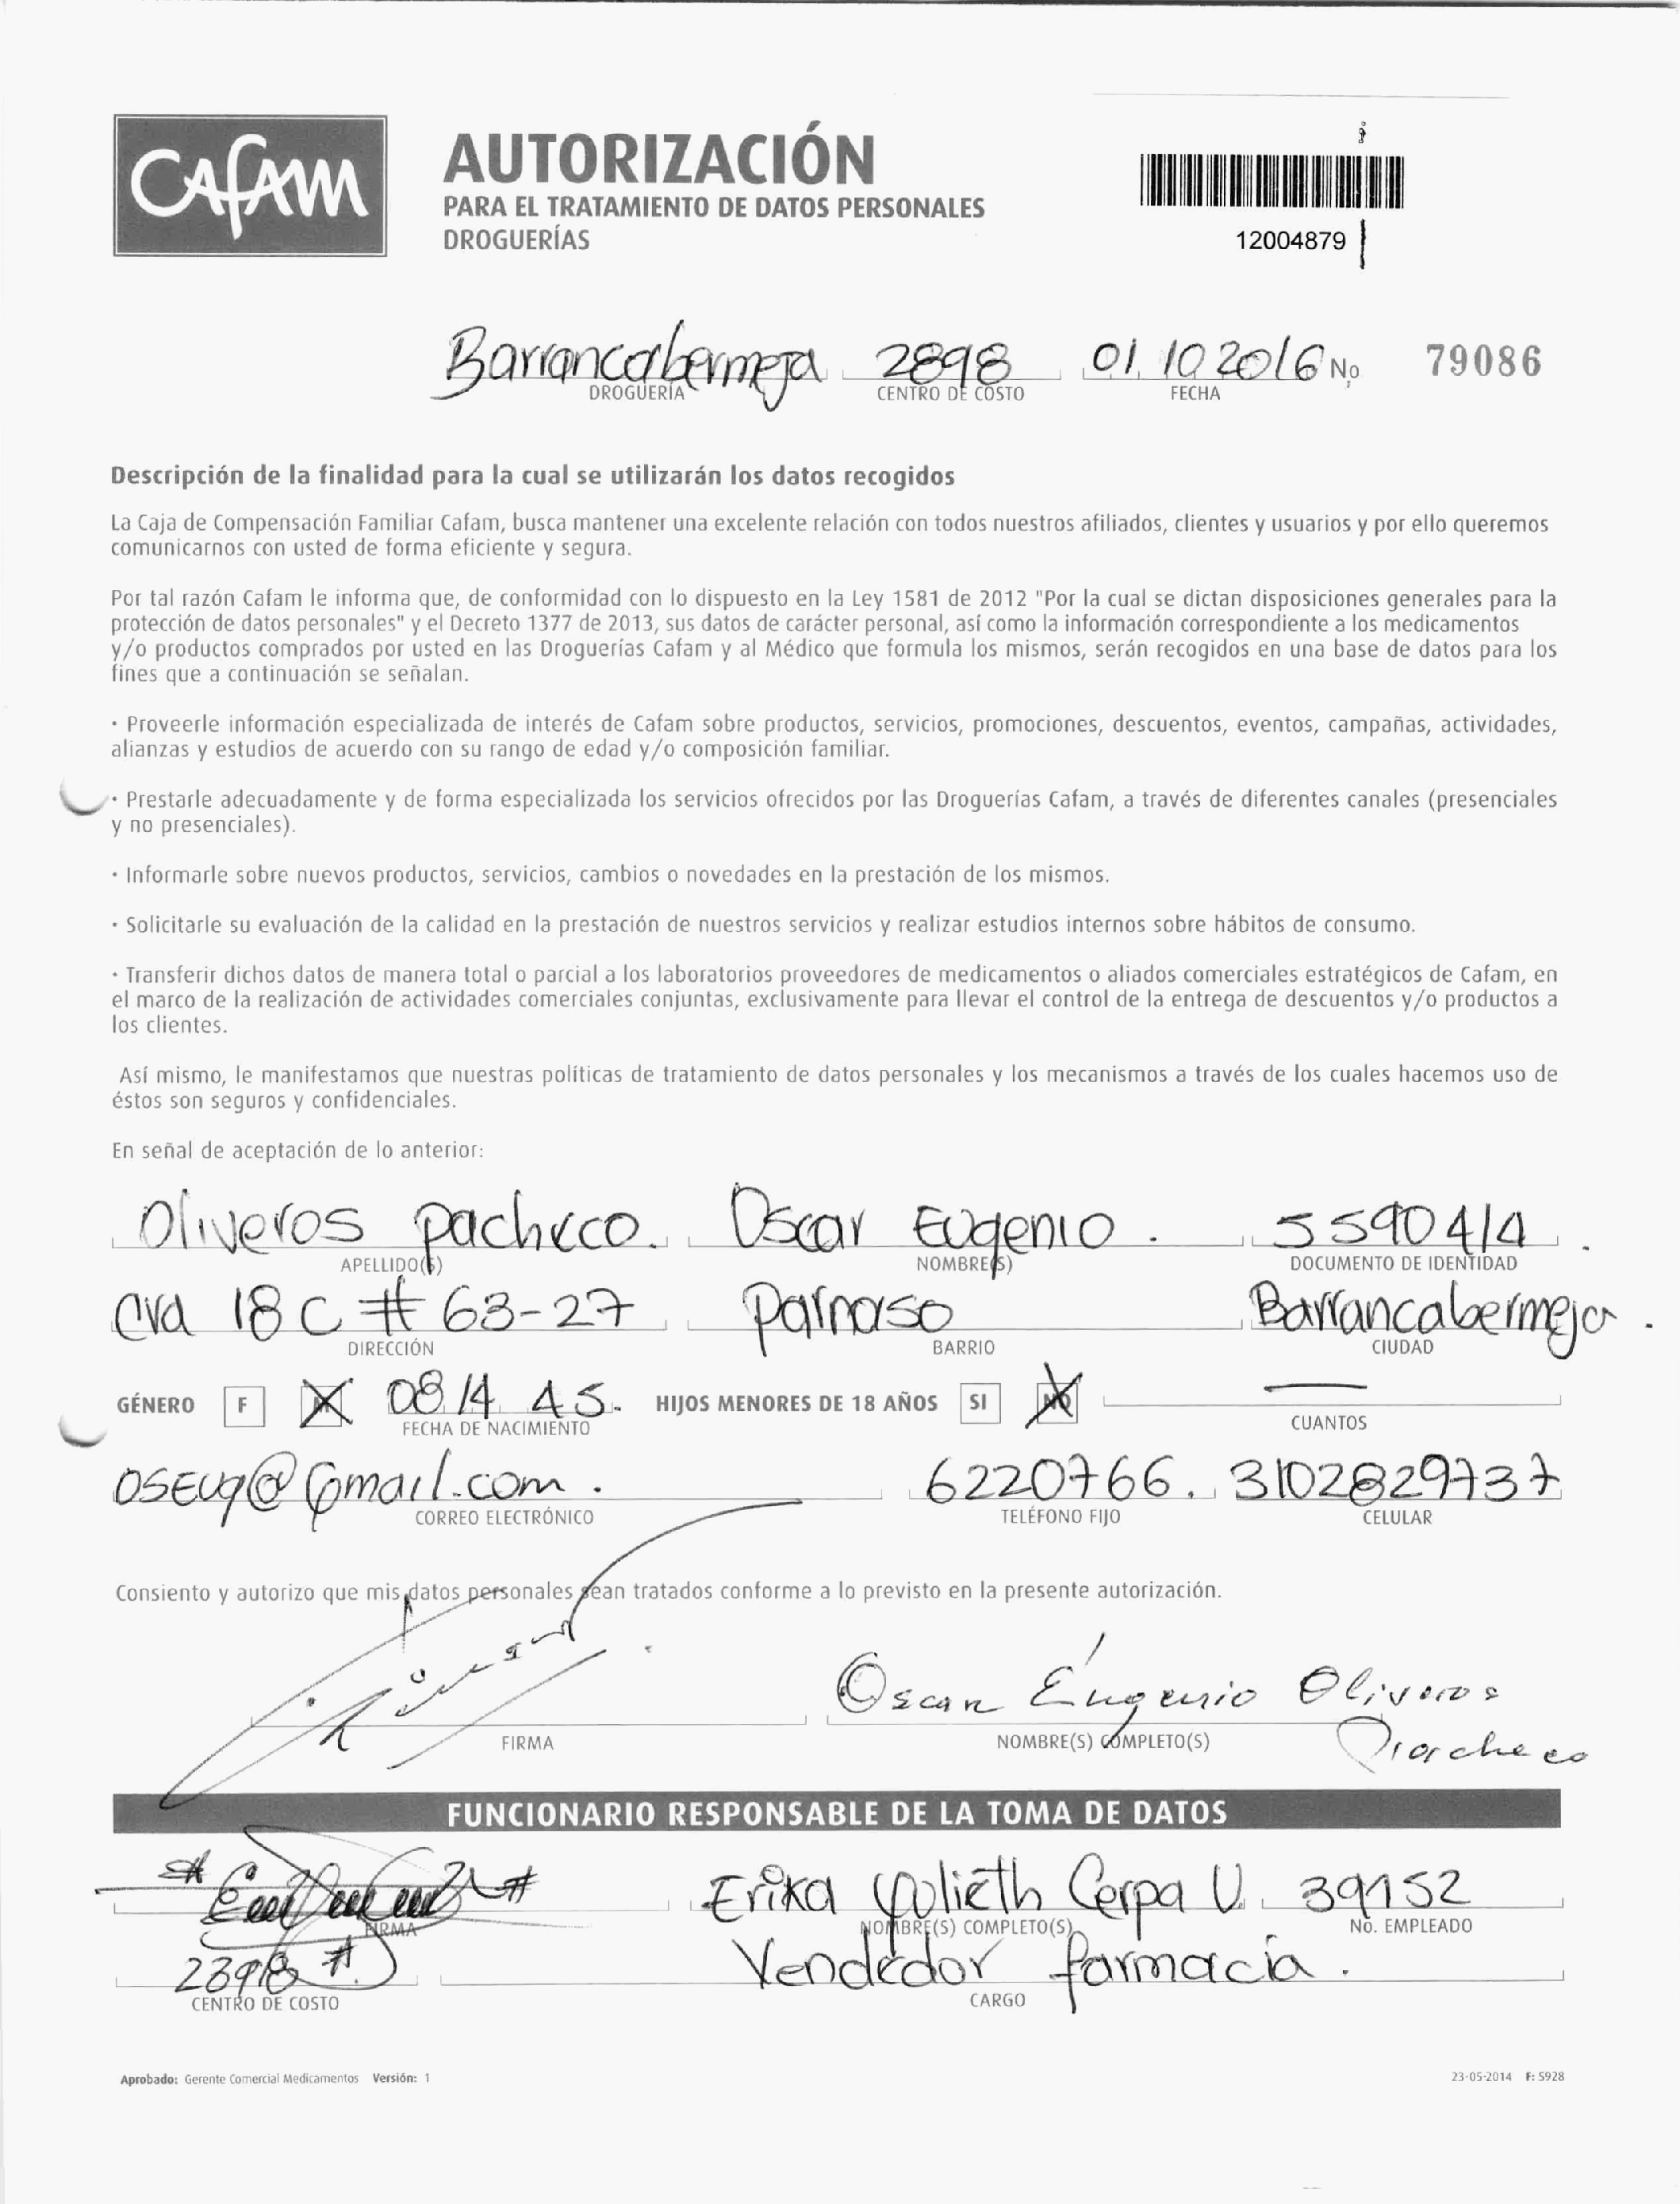 CAFAM
AUTORIZACIÓN
PARA EL TRATAMIENTO DE DATOS PERSONALES
DROGUERÍAS
12004879
Barrancabermeja 2898 01 10 2016 No 79086
DROGUERÍA CENTRO DE COSTO FECHA
Descripción de la finalidad para la cual se utilizarán los datos recogidos
La Caja de Compensación Familiar Cafam, busca mantener una excelente relación con todos nuestros afiliados, clientes y usuarios y por ello queremos
comunicarnos con usted de forma eficiente y segura.
Por tal razón Cafam le informa que, de conformidad con lo dispuesto en la Ley 1581 de 2012 "Por la cual se dictan disposiciones generales para la
protección de datos personales" y el Decreto 1377 de 2013, sus datos de carácter personal, así como la información correspondiente a los medicamentos
y/o productos comprados por usted en las Droguerías Cafam y al Médico que formula los mismos, serán recogidos en una base de datos para los
fines que a continuación se señalan.
· Proveerle información especializada de interés de Cafam sobre productos, servicios, promociones, descuentos, eventos, campañas, actividades,
alianzas y estudios de acuerdo con su rango de edad y/o composición familiar.
· Prestarle adecuadamente y de forma especializada los servicios ofrecidos por las Droguerías Cafam, a través de diferentes canales (presenciales
y no presenciales).
· Informarle sobre nuevos productos, servicios, cambios o novedades en la prestación de los mismos.
· Solicitarle su evaluación de la calidad en la prestación de nuestros servicios y realizar estudios internos sobre hábitos de consumo.
· Transferir dichos datos de manera total o parcial a los laboratorios proveedores de medicamentos o aliados comerciales estratégicos de Cafam, en
el marco de la realización de actividades comerciales conjuntas, exclusivamente para llevar el control de la entrega de descuentos y/o productos a
los clientes.
Así mismo, le manifestamos que nuestras políticas de tratamiento de datos personales y los mecanismos a través de los cuales hacemos uso de
éstos son seguros y confidenciales.
En señal de aceptación de lo anterior:
Oliveros Pacheco. Oscar Eugenio. 5590414.
APELLIDO(S) NOMBRE(S) DOCUMENTO DE IDENTIDAD
Cra 18 C # 63-27 Parnaso Barrancabermeja.
DIRECCIÓN BARRIO CIUDAD
GÉNERO F 08 14 45. HIJOS MENORES DE 18 AÑOS SI NO —
FECHA DE NACIMIENTO CUANTOS
oseug@gmail.com. 6220766. 3102829737
CORREO ELECTRÓNICO TELÉFONO FIJO CELULAR
Consiento y autorizo que mis datos personales sean tratados conforme a lo previsto en la presente autorización.
Oscar Eugenio Oliveros
Pacheco
FIRMA NOMBRE(S) COMPLETO(S)
FUNCIONARIO RESPONSABLE DE LA TOMA DE DATOS
Erika Yulieth Cerpa U. 39152
FIRMA NOMBRE(S) COMPLETO(S) No. EMPLEADO
2898 Vendedor farmacia.
CENTRO DE COSTO CARGO
Aprobado: Gerente Comercial Medicamentos Versión: 1 23-05-2014 F: 5928